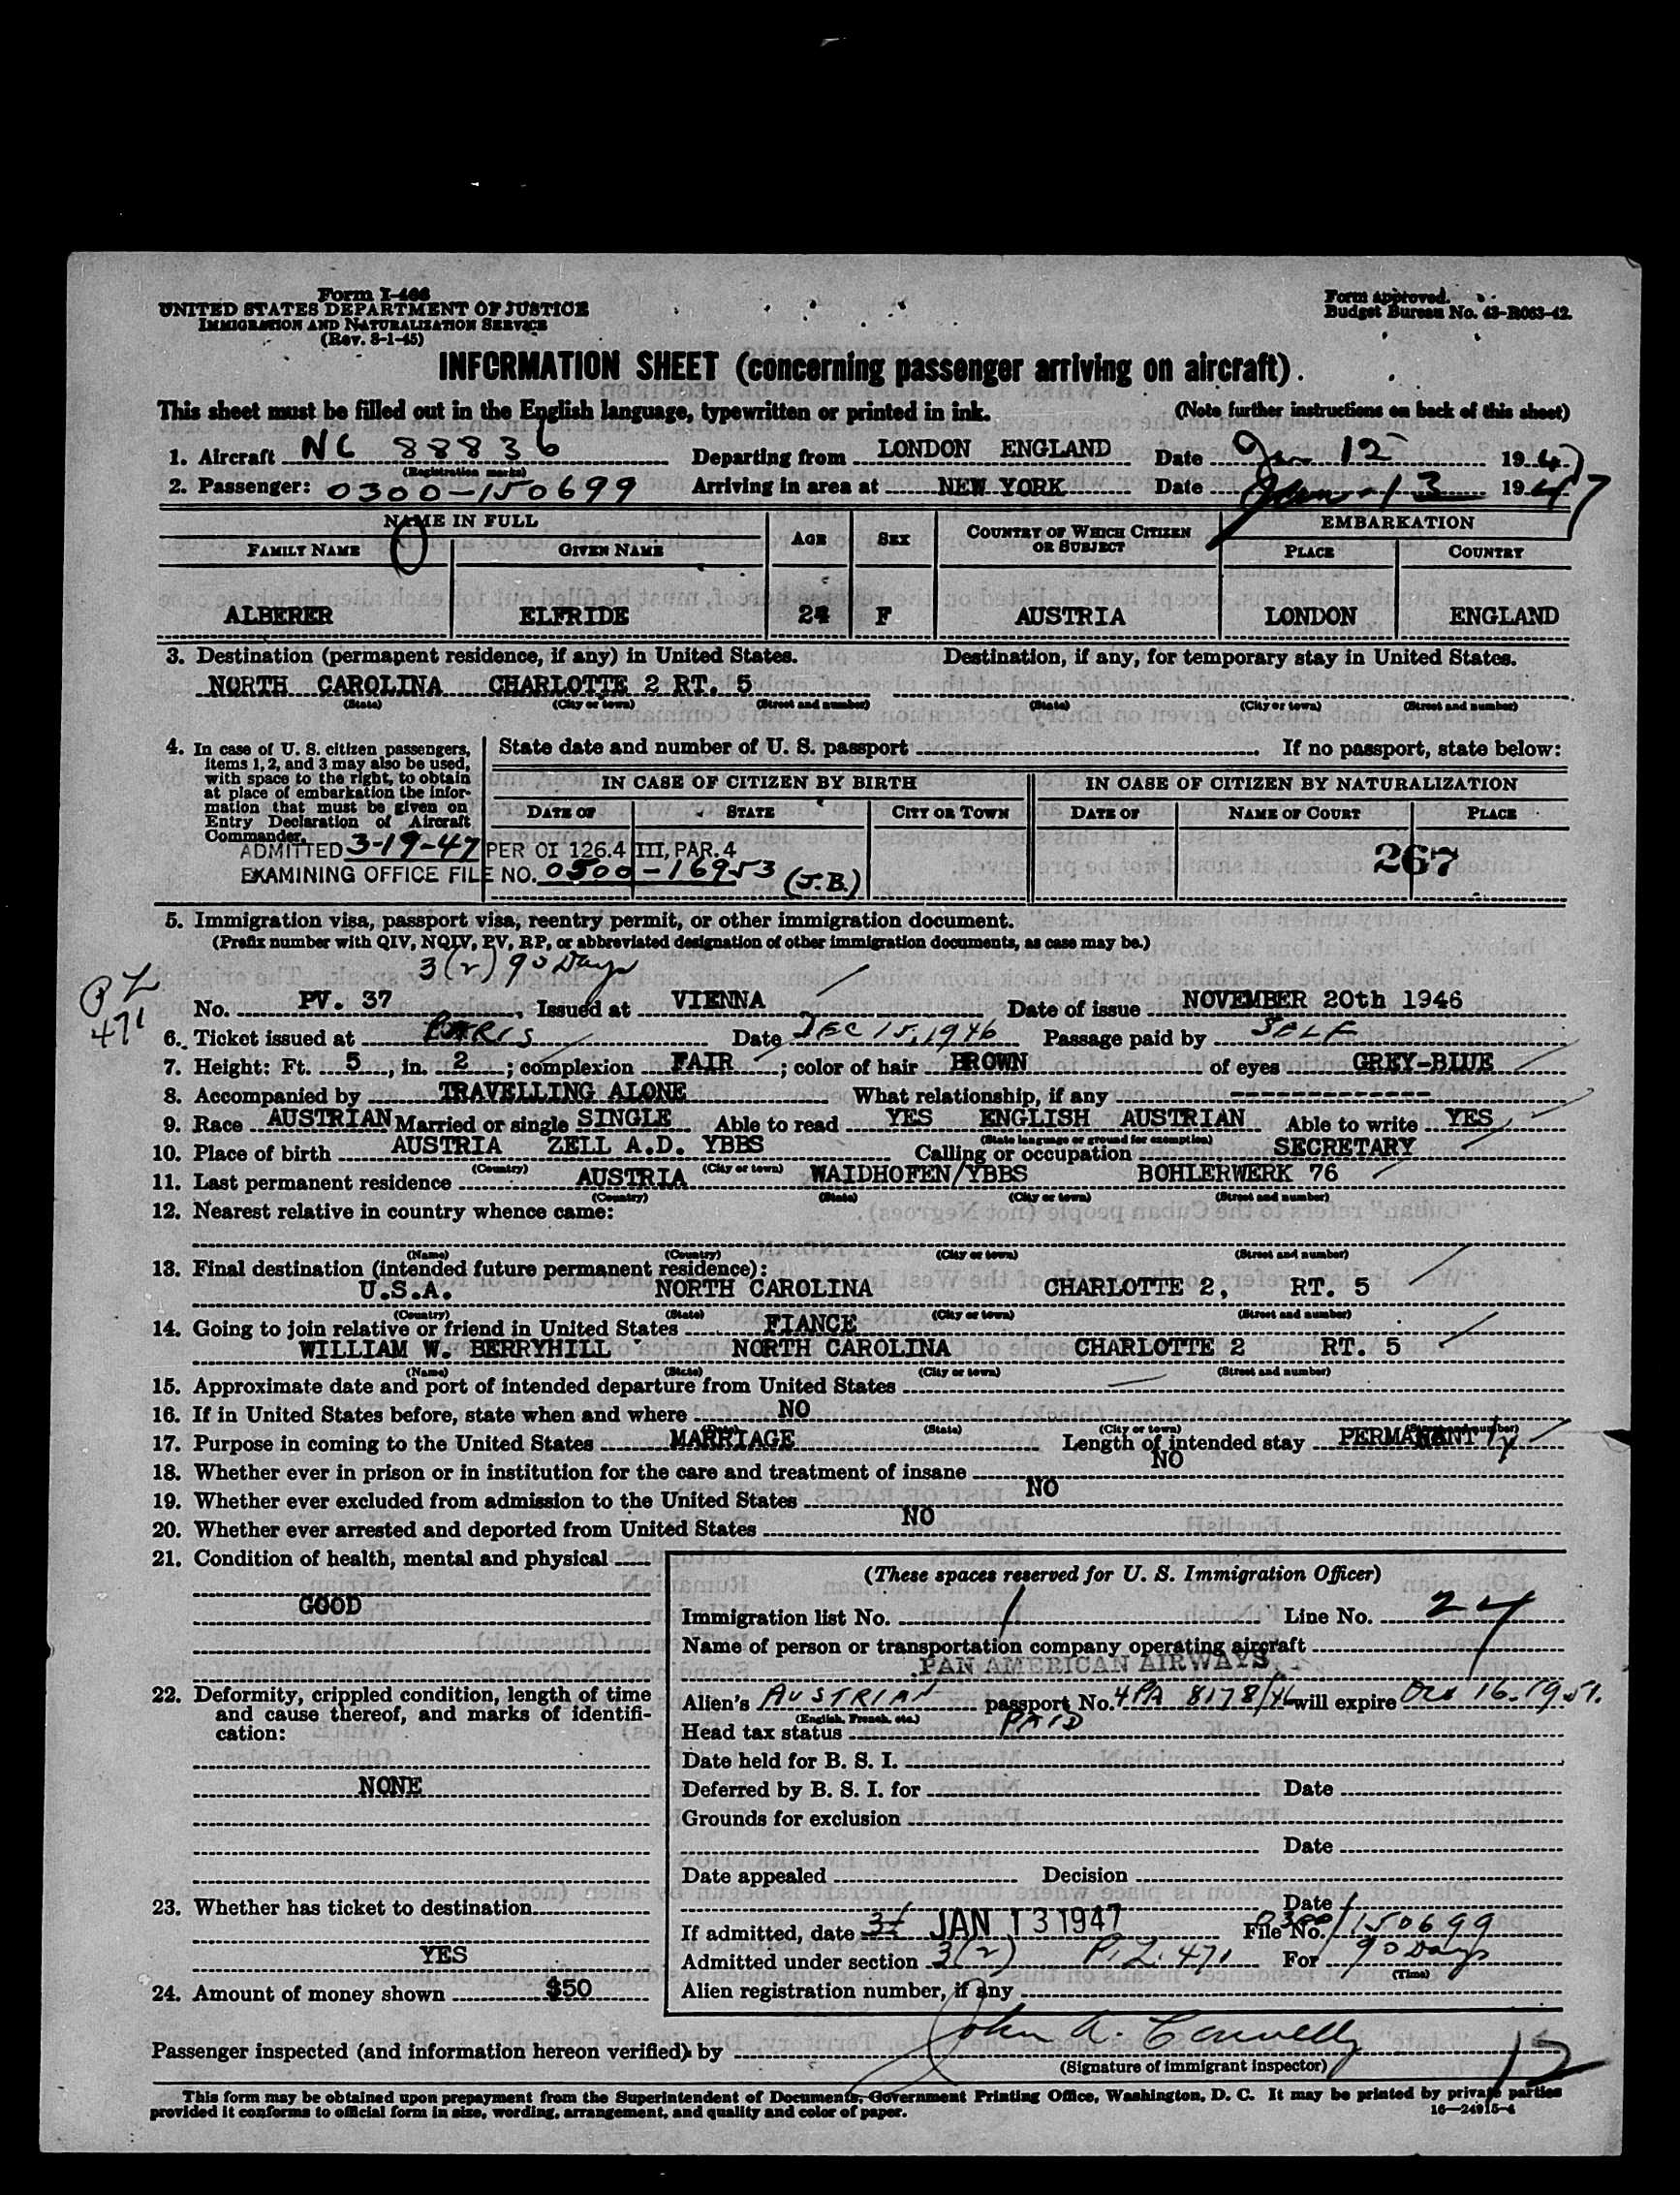 Form I-466
UNITED STATES DEPARTMENT OF JUSTICE
IMMIGRATION AND NATURALIZATION SERVICE
(Rev. 8-1-45)
Form approved.
Budget Bureau No. 43-R063-42.
INFORMATION SHEET (concerning passenger arriving on aircraft).
This sheet must be filled out in the English language, typewritten or printed in ink. (Note further instructions on back of this sheet)
1. Aircraft NC 88836 Departing from LONDON ENGLAND Date Jan 12 1947
(Registration marks)
2. Passenger: 0300-150699 Arriving in area at NEW YORK Date Jan-13 1947
NAME IN FULL AGE SEX COUNTRY OF WHICH CITIZEN OR SUBJECT EMBARKATION
FAMILY NAME GIVEN NAME PLACE COUNTRY
ALBERER ELFRIDE 24 F AUSTRIA LONDON ENGLAND
3. Destination (permanent residence, if any) in United States. Destination, if any, for temporary stay in United States.
NORTH CAROLINA CHARLOTTE 2 RT. 5
(State) (City or town) (Street and number) (State) (City or town) (Street and number)
4. In case of U. S. citizen passengers,
items 1, 2, and 3 may also be used,
with space to the right, to obtain
at place of embarkation the infor-
mation that must be given on
Entry Declaration of Aircraft
Commander.
State date and number of U. S. passport If no passport, state below:
IN CASE OF CITIZEN BY BIRTH IN CASE OF CITIZEN BY NATURALIZATION
DATE OF STATE CITY OR TOWN DATE OF NAME OF COURT PLACE
ADMITTED 3-19-47 PER OI 126.4 III, PAR. 4
267
EXAMINING OFFICE FILE NO. 0500-16953 (J.B.)
5. Immigration visa, passport visa, reentry permit, or other immigration document.
(Prefix number with QIV, NQIV, PV, RP, or abbreviated designation of other immigration documents, as case may be.)
3(2) 90 Days
PL
471
No. PV. 37, Issued at VIENNA Date of issue NOVEMBER 20th 1946
6. Ticket issued at PARIS Date DEC 15, 1946 Passage paid by SELF
7. Height: Ft. 5, in. 2; complexion FAIR; color of hair BROWN of eyes GREY-BLUE
8. Accompanied by TRAVELLING ALONE What relationship, if any -------------
9. Race AUSTRIAN Married or single SINGLE Able to read YES ENGLISH AUSTRIAN Able to write YES
(State language or ground for exemption)
10. Place of birth AUSTRIA ZELL A.D. YBBS Calling or occupation SECRETARY
(Country) (City or town)
11. Last permanent residence AUSTRIA WAIDHOFEN/YBBS BOHLERWERK 76
(Country) (State) (City or town) (Street and number)
12. Nearest relative in country whence came:
(Name) (Country) (City or town) (Street and number)
13. Final destination (intended future permanent residence):
U.S.A. NORTH CAROLINA CHARLOTTE 2, RT. 5
(Country) (State) (City or town) (Street and number)
14. Going to join relative or friend in United States FIANCE
WILLIAM W. BERRYHILL NORTH CAROLINA CHARLOTTE 2 RT. 5
(Name) (State) (City or town) (Street and number)
15. Approximate date and port of intended departure from United States
16. If in United States before, state when and where NO
(State) (City or town) (Street and number)
17. Purpose in coming to the United States MARRIAGE Length of intended stay PERMANANT
18. Whether ever in prison or in institution for the care and treatment of insane NO
19. Whether ever excluded from admission to the United States NO
20. Whether ever arrested and deported from United States NO
21. Condition of health, mental and physical
GOOD
22. Deformity, crippled condition, length of time
and cause thereof, and marks of identifi-
cation:
NONE
23. Whether has ticket to destination
YES
24. Amount of money shown $50
(These spaces reserved for U. S. Immigration Officer)
Immigration list No. 1 Line No. 24
Name of person or transportation company operating aircraft
PAN AMERICAN AIRWAYS
Alien's AUSTRIAN passport No. 4PA 8178/46 will expire Oct 16. 1951.
(English, French, etc.)
Head tax status PAID
Date held for B. S. I.
Deferred by B. S. I. for Date
Grounds for exclusion
Date
Date appealed Decision
Date
If admitted, date JAN 13 1947 File No. 0300/150699
Admitted under section 3(2) P.L. 471 For 90 Days
(Time)
Alien registration number, if any
Passenger inspected (and information hereon verified) by John A. Connelly
(Signature of immigrant inspector)
12
This form may be obtained upon prepayment from the Superintendent of Documents, Government Printing Office, Washington, D. C. It may be printed by private parties
provided it conforms to official form in size, wording, arrangement, and quality and color of paper.
16—24915-4